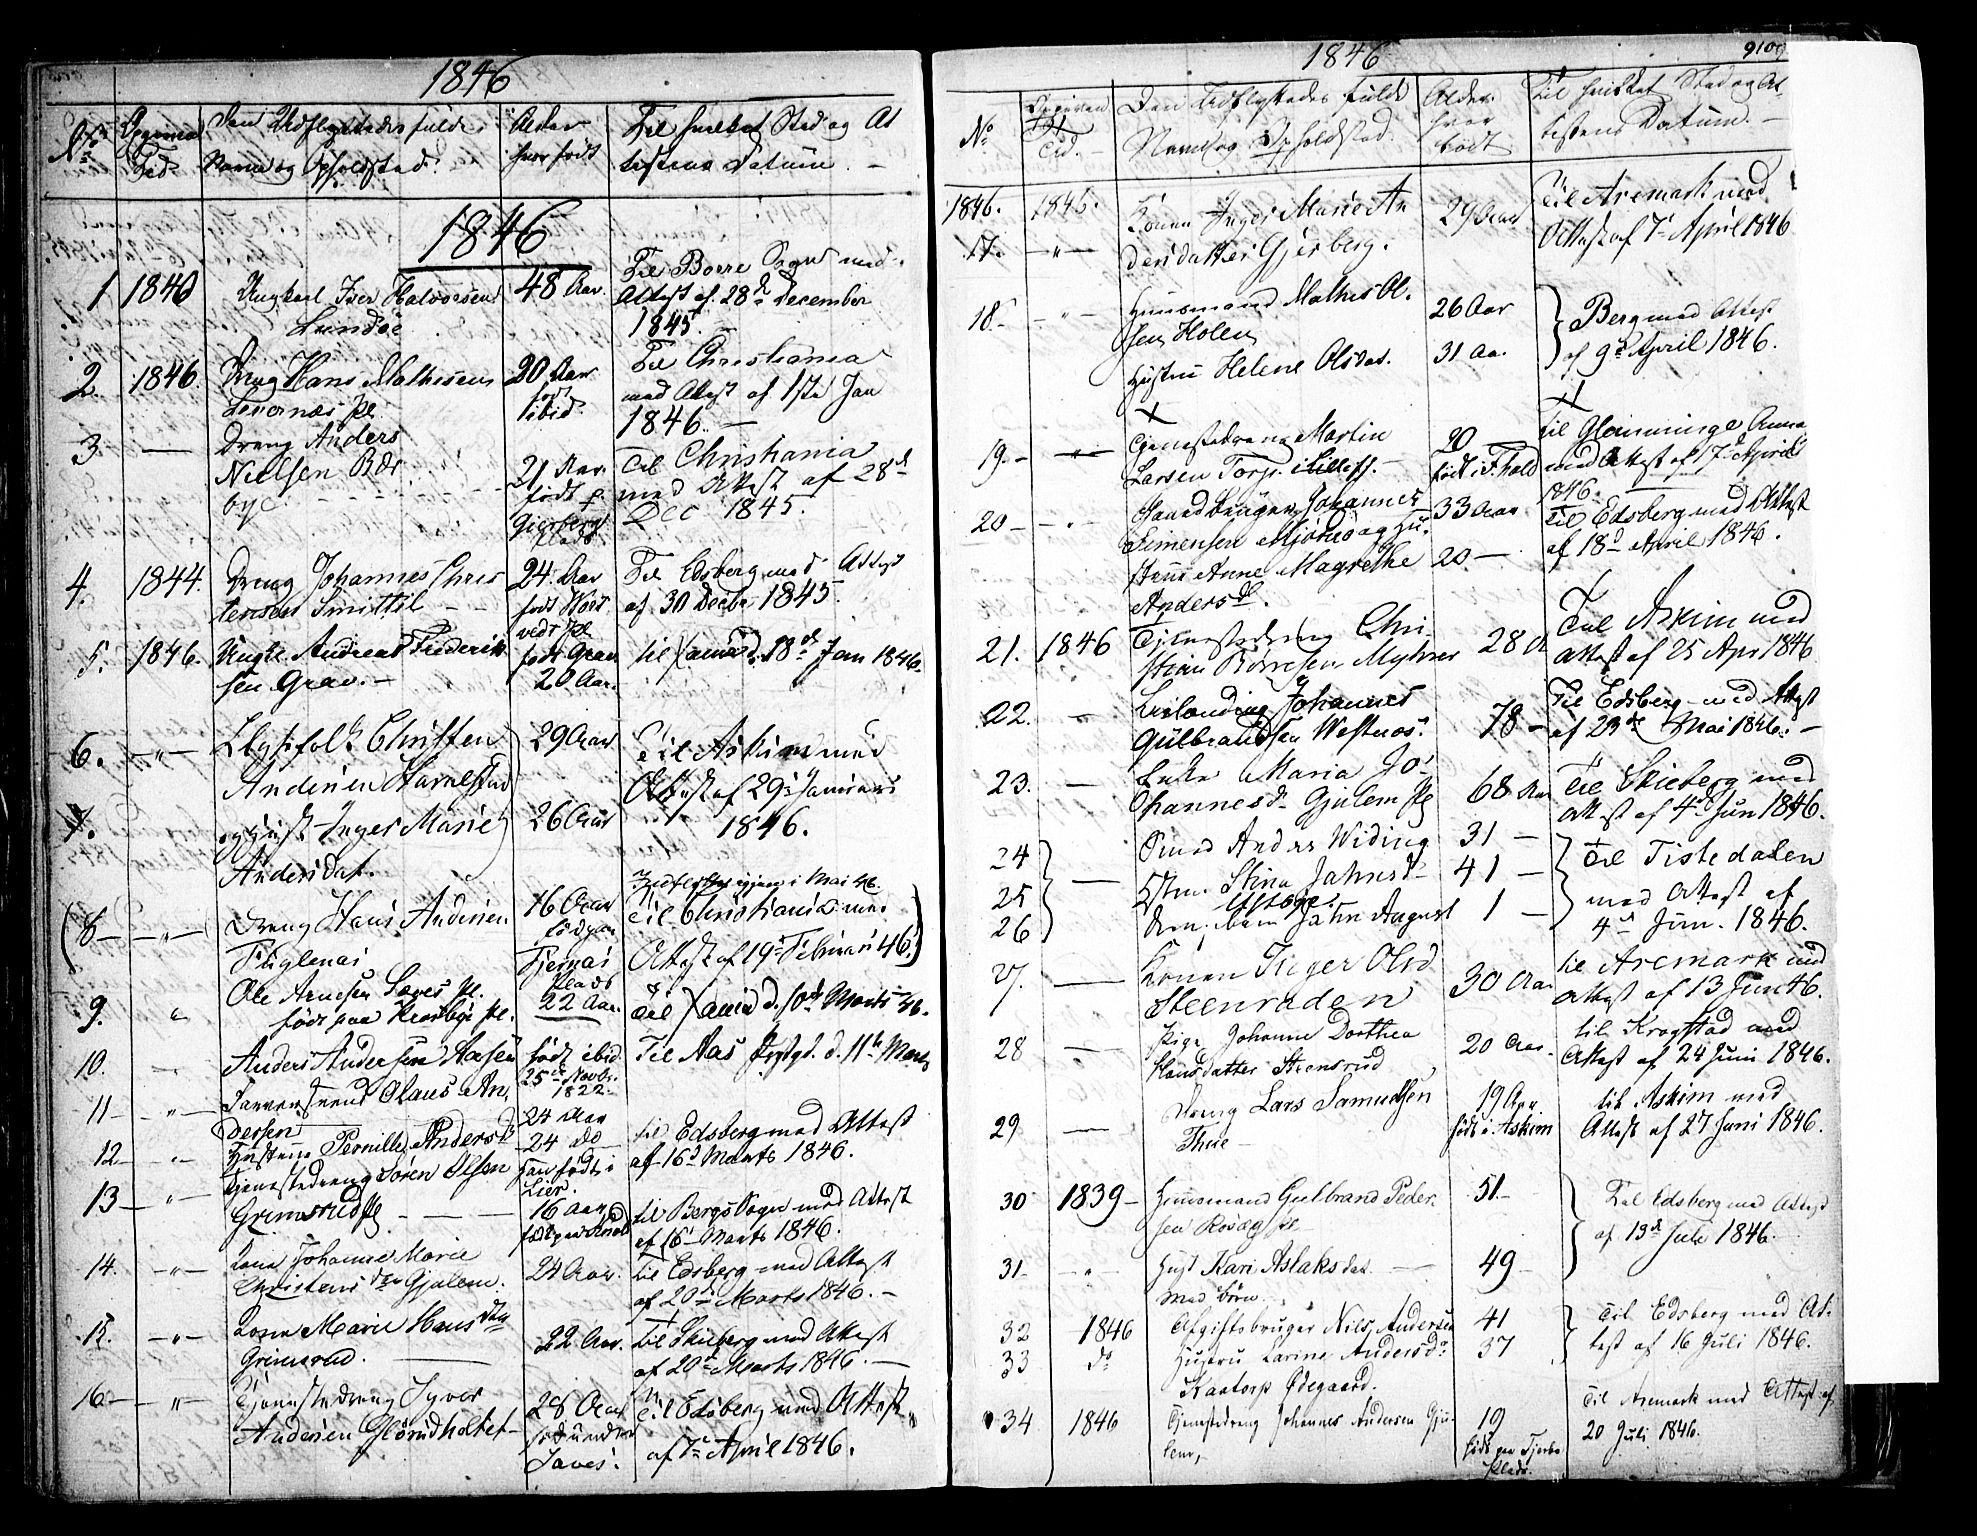 1846
No Opgivne Tid
Den Udflyttedes fulde Navn og Opholdsted.
Alder hvor født
Til hvilket Sted og Attestens Datum
1846
1 1846 Ungkarl Iver Halvorsen 48 Aar. Til Borre Sogn med
Lundöe Attest af 28de December
1845.
2. 1846. Dreng Hans Mathisen 20 Aar Til Christiania
pl. født ibid. med Attest af 1ste Jan
1846.
3. — Dreng Anders 21 Aar. Til Christiania
Nielsen født p. med Attest af 28de
bye Gierberg Plads Dec 1845.
4. 1844. Dreng Johannes Chris 24. Aar Til Edsberg med Attest
tensen Smittil født af 30 Decbr 1845.
5. 1846. Ungk. Andreas Frederik født Grav til 18de Jan 1846.
sen Grav. 20 Aar.
6. " Christen 29 Aar Til Askim med
Andersen Attest af 29de Januari
7. og Hust. Inger Marie 26 Aar 1846.
Andersdat.
igjen i Mai 46.
(8 — " — Dreng Hans Andersen 16 Aar Til Christiania med
Fuglenæs Plads Attest af 19de Februari 46.)
9. " Ole Arnesen pl. 22 Aar. Til d. 10de Marts 46.
født paa pl.
10. Anders Andersen født ibid. Til Aas Prstgd. d. 11te Marts
25de Novbr. 1822.
11 — " — Olaus An, 24 Aar
dersen
12 — Hustrue Pernille Andersd. 24 do til Edsberg med Attest
af 16de Marts 1846.
13 — " — Tjenestedreng Søren Olsen Han født i Lier.
Grimsrud pl 16 Aar til Bergs Sogn med Attest
af 16 Marts 1846.
14. — " — Kone Johanne Marie 24 Aar. til Edsberg med Attest
Christensdtr Gjølem. af 20de Marts 1846.
15. — " — Kone Marie Hansdtr 22 Aar. Til Skieberg med Attest
Grimsrud. af 20de Marts 1846.
16 — " Tjenestedreng Syver 28 Aar Til Edsberg med Attest
Andersen født af 7de April 1846.
1846
No Opgiven Tid.
Den Udflyttedes fulde Navn og Opholdsted.
Alder hvor født
Til hvilket Sted og Attestens Datum.
1846. 1846. Konen Inger Marie An 29 Aar Til Aremark med
17. — " — dersdatter Gjerberg. Attest af 7de April 1846
18. — " — Huusmand Mathis Ol. 26 Aar Berg med Attest
sen Holen af 9de April 1846.
Hustru Helene Olsdat. 31 Aa.
19. — Tjenestedreng Martin 20 til Glemminge Annex
Larsen Torp født i F.hald med Attest af 17de April
1846.
20 — " — Gaardbruger Johannes 33 Aar Til Edsberg med Attest
Simensen og Hu. af 18de April 1846.
strue Anne Magrethe 20 —
Andersd.
21. 1846 Tjenestedreng Chri. 28 A Til Askim med
stian Børresen Myhrer Attest af 25 Apr 1846
22. — Johannes 78 — Til Edsberg med Attest
Gulbrandsen Westnæs. af 23de Mai 1846.
23. — Enke Maria Jo. 68 Aar Til Skieberg med
hannesd. Gjølem pl Attest af 4de Jun 1846.
24 Smed Anders Widing 31 — Til Tistedalen
25 — Hstru. Stina Jahnsd. 41 — med Attest af
26 barn Jahn August 1 — 4de Jun. 1846.
27. — Konen Inger Olsd 30 Aar til Aremark med
Steenraden Attest af 13 Jun 46.
28 — Pige Johanne Dorthea 20 Aar. til Krogstad med
Hansdatter Steensrud Attest af 24 Juni 1846.
29 — Dreng Lars Samuelsen 19 Aar til Askim med
Thue — født i Askim Attest af 27 Juni 1846.
30 1839 — Huusmand Gulbrand Peder. 51. Til Edsberg med Attest
sen pl. af 13de Juli 1846.
31. " Hust Kari Aslaksdat. 49
med børn
32 1846 Afgiftsbruger Nils Andersen 41 Til Edsberg med At.
33 do Hustru Karine Andersdr 37 test af 16 Juli 1846.
Kaatorp Ødegaard.
34 1846 Tjenestedreng Johannes Andersen Gjø 19 Til Aremark med Attest af
lem, født paa Plads. 20 Juli 1846.